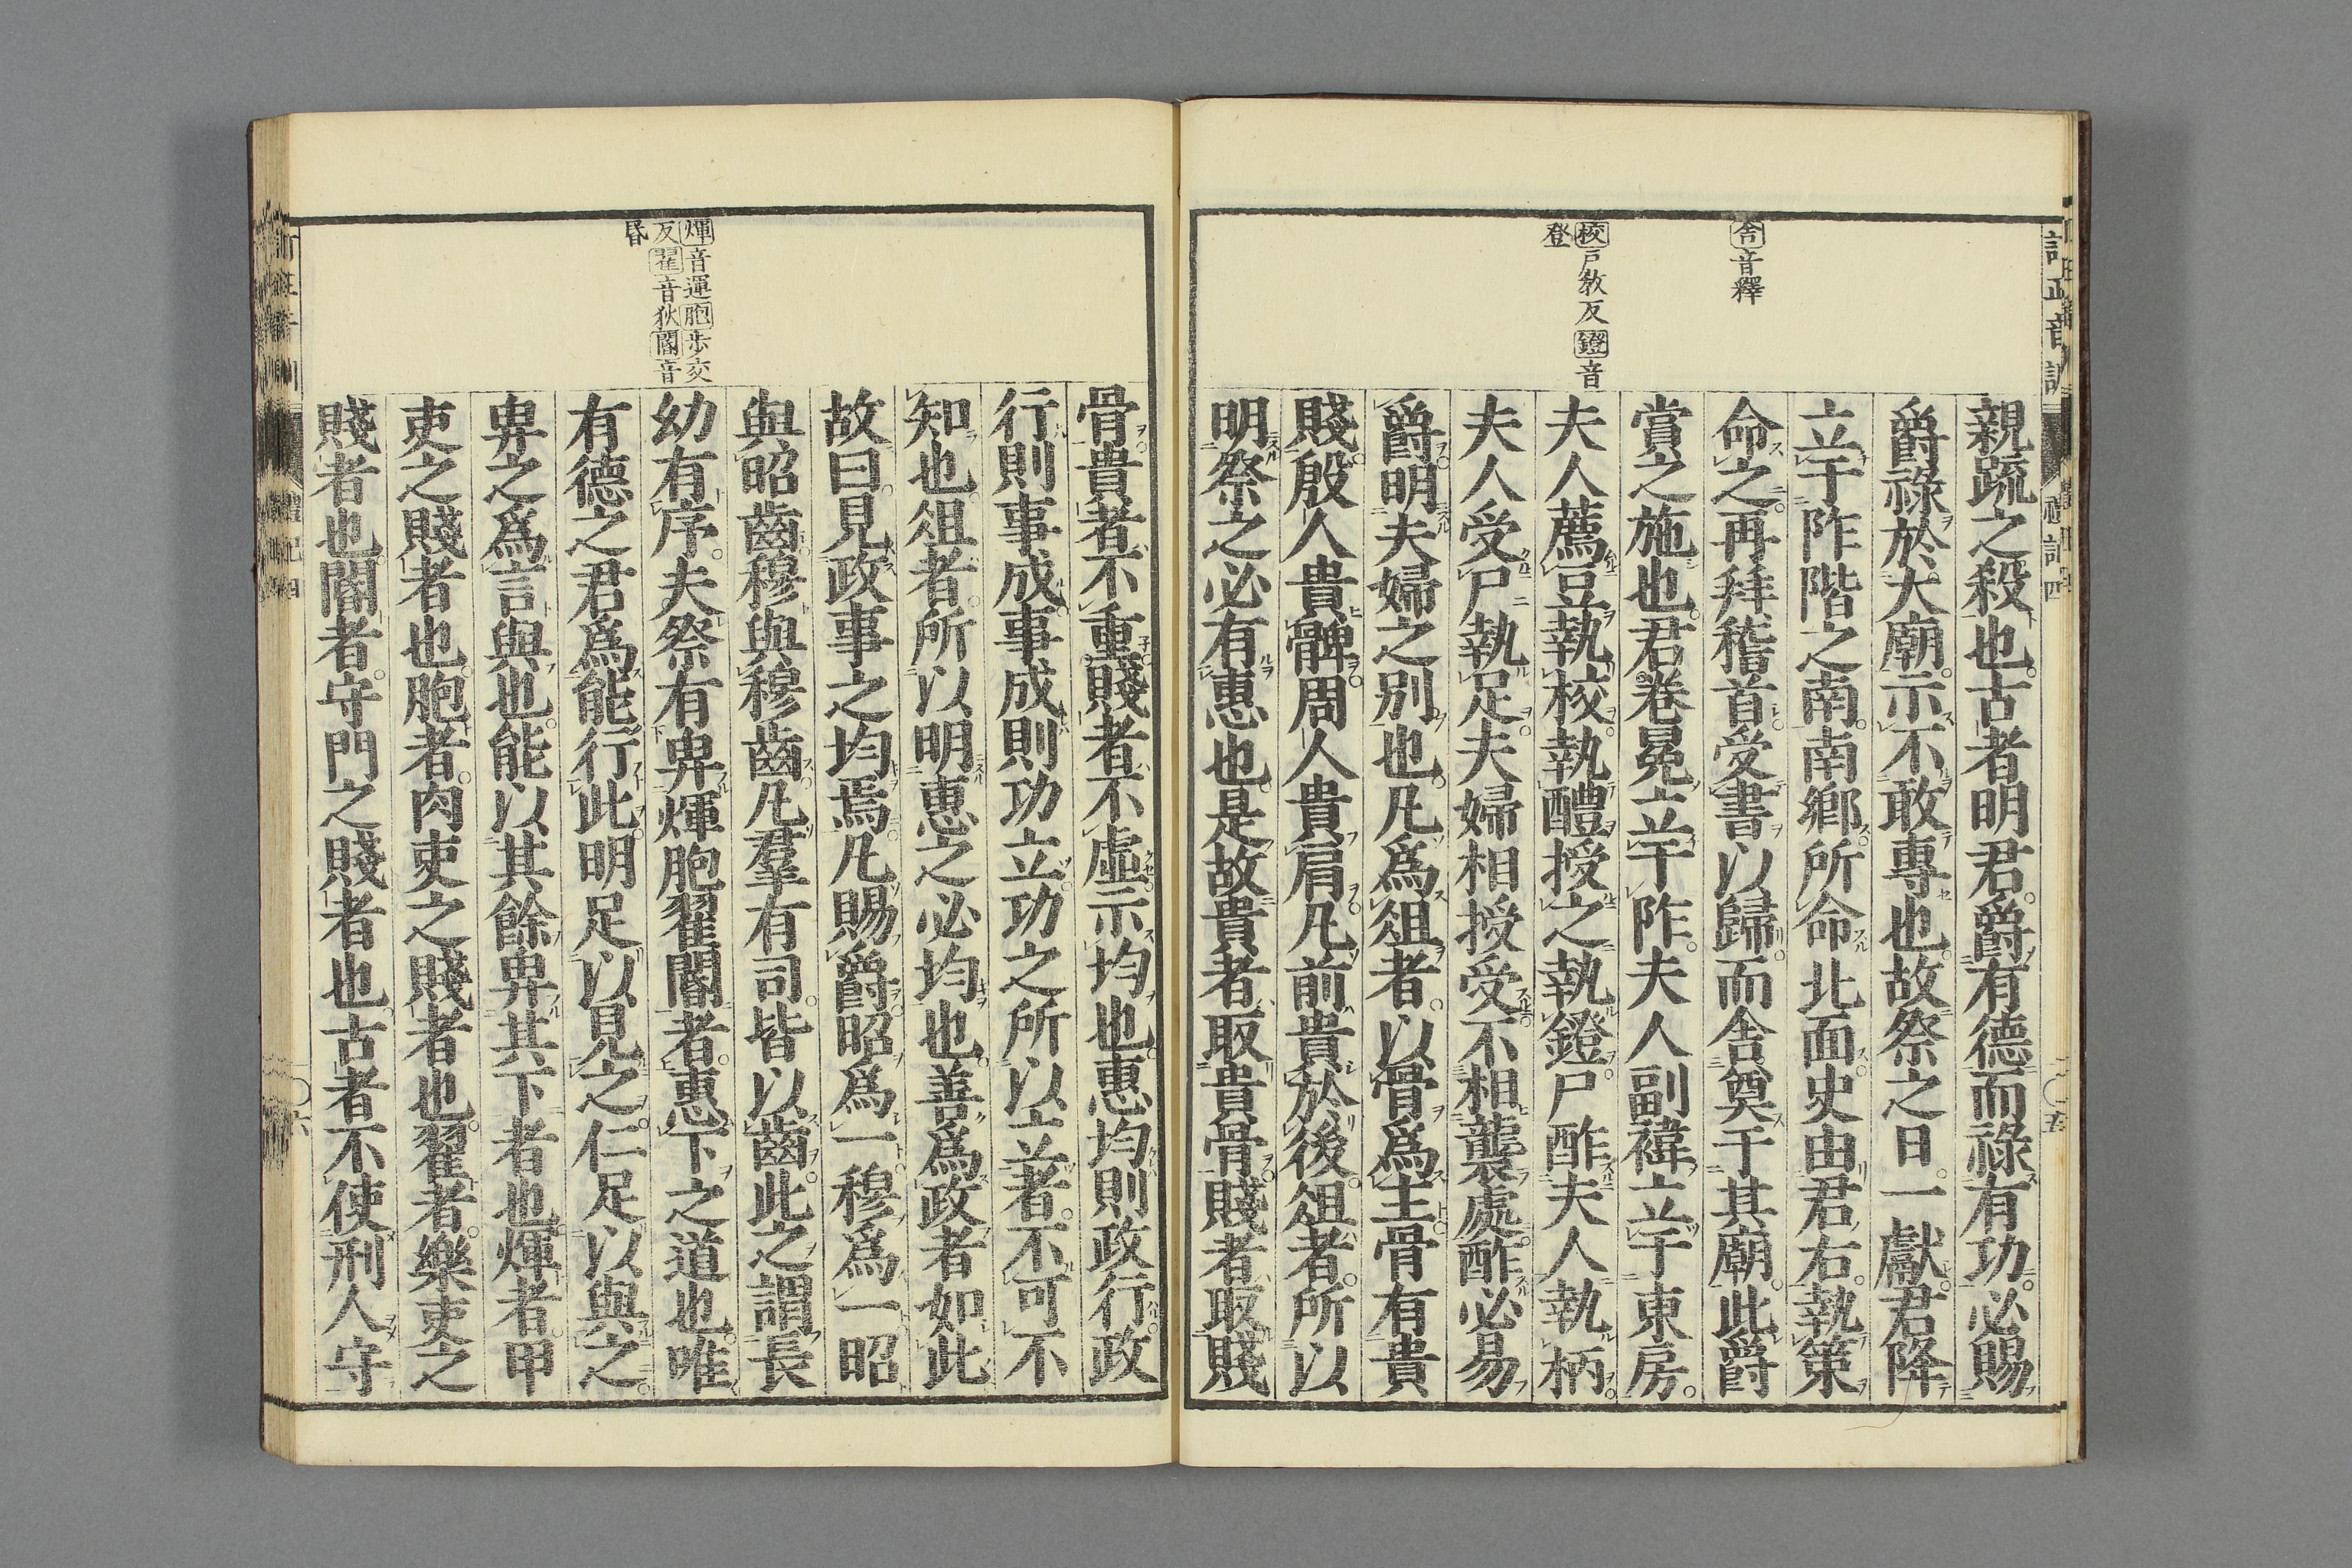 親疏之殺也古者明君爵有德而祿有功必賜
爵祿於大廟示不敢專也故祭之日一獻君降
立于阼階之南南鄉所命北面史由君右執策
命之再拜稽首受書以歸而舍奠于其廟此爵
賞之施也君卷冕立于阼夫人副褘立于東房
夫人薦豆執校執醴授之執鐙尸酢夫人執柄
夫人受尸執足夫婦相授受不相襲處酢必易
爵明夫婦之別也凡爲俎者以骨爲主骨有貴
賤殷人貴髀周人貴肩凡前貴於後俎者所以
明祭之必有惠也是故貴者取貴骨賤者取賤
舍音釋
校戸教反鐙音
登
骨貴者不重賤者不虛示均也惠均則政行政
行則事成事成則功立功之所以立者不可不
知也俎者所以明惠之必均也善爲政者如此
故曰見政事之均焉凡賜爵昭爲一穆爲一昭
與昭齒穆與穆齒凡羣有司皆以齒此之謂長
幼有序夫祭有畀煇胞翟閽者惠下之道也唯
有德之君爲能行此明足以見之仁足以與之
畀之爲言與也能以其餘畀其下者也煇者甲
吏之賤者也胞者肉吏之賤者也翟者樂吏之
賤者也閽者守門之賤者也古者不使刑人守
煇音運胞步交
反翟音狄閽音
昬
禮記四